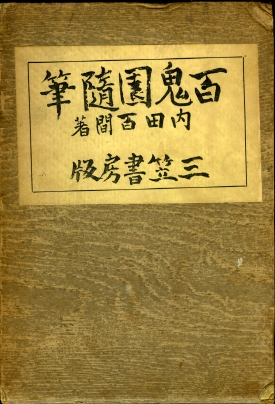 百鬼園隨筆
内田百間著
三笠書房版